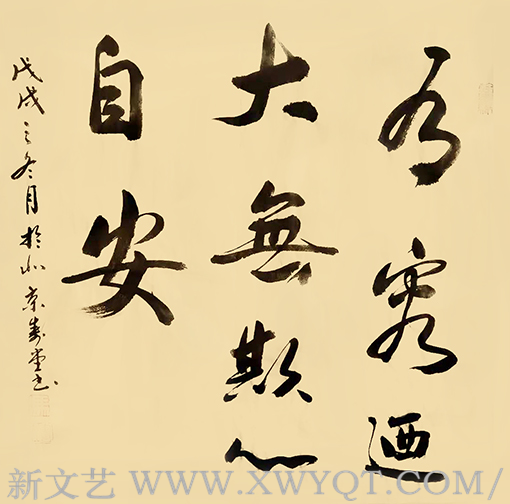 有容迺
大無欺心
自安
戊戌之冬月於北京堂书
新文艺 WWW.XWYQT.COM/